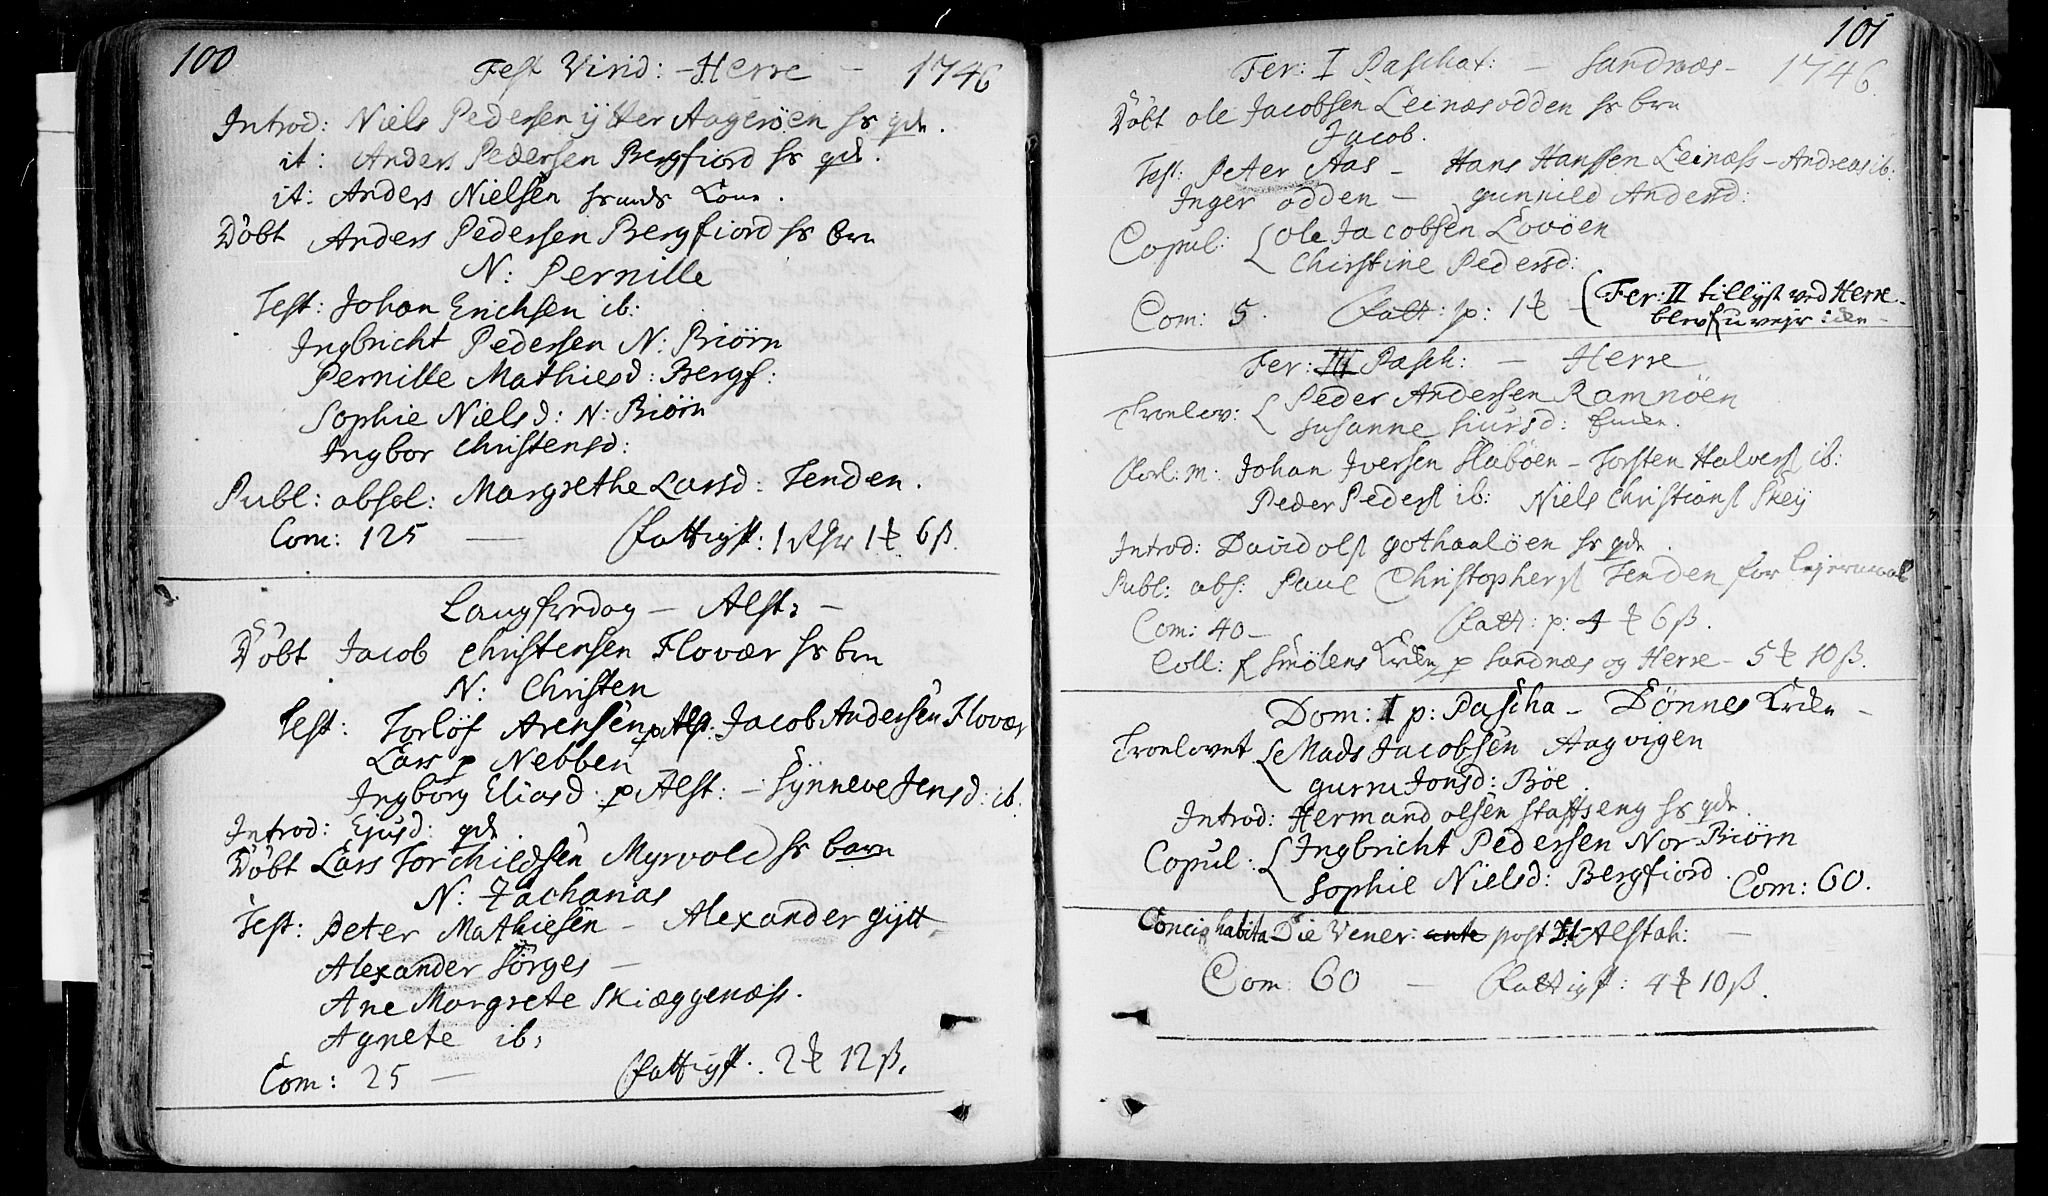 100
Fest Virid: - Herre - 1746
Introd: Niels Pedersen ÿtter Aagerøen hs qde.
it: Anders Pedersen Bergfiord hs qde.
it: Anders Nielsen hrands Kone.
Døbt Anders Pedersen Bergfiord hs brn
N: Pernille
Test: Johan Erichsen ib:
Ingbricht Pedersen N: Biørn
Pernille Mathiesd: Bergf:
Sophie Nielsd: N: Biørn
Ingbor Christensd:
Publ: absol: Margrethe Larsd: Tenden.
Com: 125 — Fattigst: 1 Rdr 1 ℔ 6 ß.
Langfredag - Alst: -
Døbt Jacob Christensen Flovær hs brn
N: Christen
Test: Torløf Arensen p Alst: Jacob Andersen Flovær
Lars p Nebben
Ingborg Eliasd: p Alst: - Sÿnneve Jensd: ib.
Introd: Ejusd: qde
Døbt Lars Torchildsen Myrvold hs barn
N: Zacharias
Test: Peter Mathiesen - Alexander gÿtt
Alexander Sørges -
Ane Margrete Skiæggenæss.
Agnete ib:
Com: 25 — Fattigst: 2 ℔ 12 ß.
101
Fer: I Paschat: - Sandnæs - 1746.
Døbt Ole Jacobsen Leinæsodden hs brn
Jacob.
Test: Peter Aas - Hans Hanssen Leinæss - Andreas ib:
Inger odden - gunnild Andersd:
Copul: Ole Jacobsen Lovøen
Christine Pedersd:
Com: 5. Fatt: p: 1 ℔ - (Fer: II tillyst ved Herre
blev f uvejr iken -
Fer: III Pasch: - Herre
Troelov: Peder Andersen Ramnøen
Susanne Siursd:
Forl: m: Johan Iversen Slabøen - Torsten Halvers ib:
Peder Peders ib: Niels Christians Skeÿ
Introd: David Ols Gothaaløen hs qde.
Publ: abs: Paul Christophers Tenden for lejermaal
Com: 40 - Fatt: p: 4 ℔ 6 ß.
Coll: f Smølens Kirke p Sandnæs og Herre - 5 ℔ 10 ß.
Dom: I p: Pascha - Dønnes Kirke -
Troelovet Mads Jacobsen Aagvigen
Gurru Jonsd: Bøe.
Introd: Hermand Olsen Staffseng hs qde
Copul: Ingbricht Pedersen Nor-Biørn
Sophie Nielsd: Bergfiord. Com: 60.
Concio habita Die Vener: ante post Alstah: -
Com: 60 - Fattigst: 4 ℔ 10 ß.